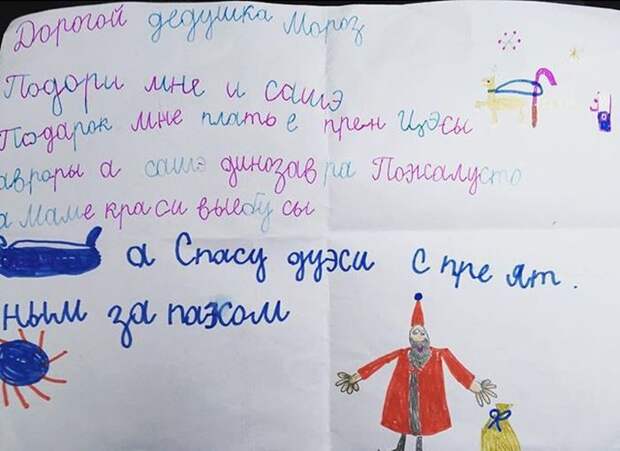 Дорогой дедушка Мороз
Подори мне и сашэ
Подарок мне плать е прен цэсы
авроры а сашэ динозав ра Пожалусто
а маме кра си выебу сы
а Спасу дуэси с пре ят.
ным за пахом